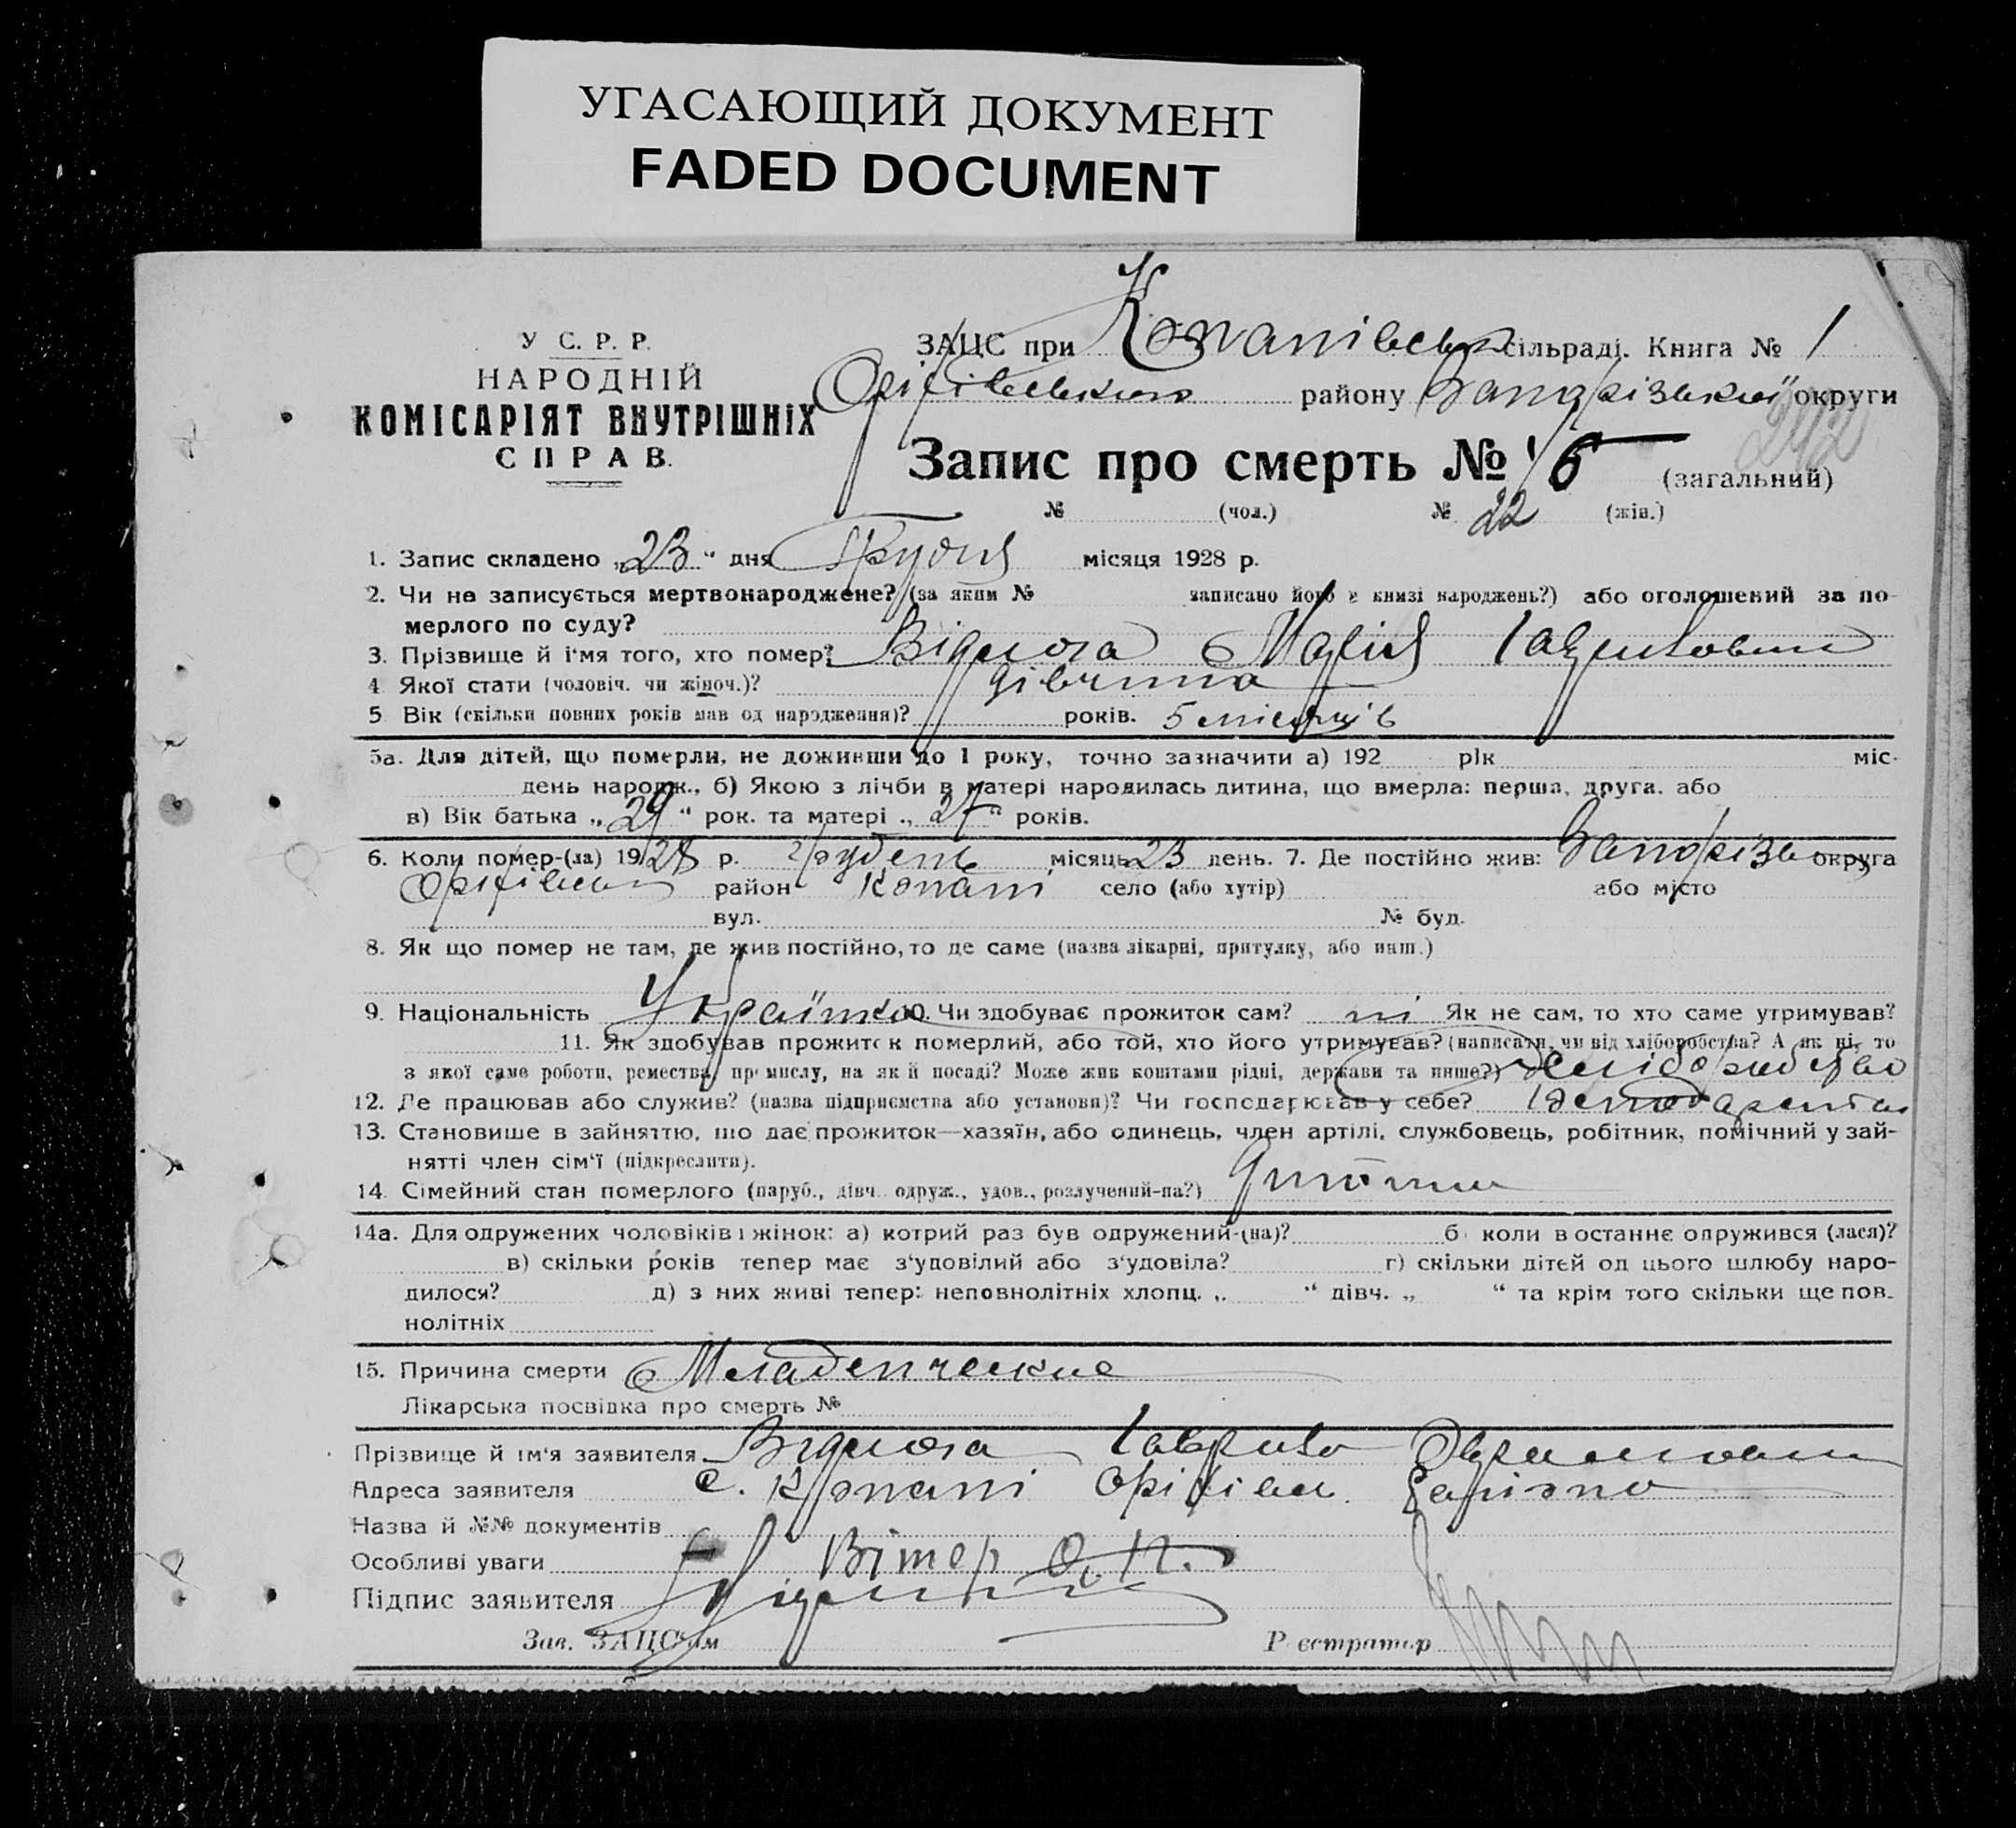 УГАСАЮЩИЙ ДОКУМЕНТ
FADED DOCUMENT
У С. Р. Р.
НАРОДНІЙ
КОМІСАРІЯТ ВНУТРІШНІХ
СПРАВ.
ЗАЦС при Копанівськ сільраді. Книга № 1
Оріхівського району Запорізької округи
292
Запис про смерть № (загальний)
№ (чол.) № 22 (жін.)
1. Запис складено „23“ дня Грудня місяця 1928 р.
2. Чи не записується мертвонароджене? (за яким № записано його в книзі народжень?) або оголошений за по-
мерлого по суду?
3. Прізвище й ім'я того, хто помер? Марія Гавриловна
4 Якої стати (чоловіч. чи жіноч.)? дівчина
5 Вік (скільки повних років мав од народження)? років. 5 місяців
5а. Для дітей, що померли, не доживши до 1 року, точно зазначити а) 192 рік міс.
день народж., б) Якою з лічби в матері народилась дитина, що вмерла: перша, друга. або
в) Вік батька „29“ рок. та матері „27“ років.
6. Коли помер-(ла) 1928 р. грудень місяць 23 день. 7. Де постійно жив: Запорізь округа
Оріхівськ район Копані село (або хутір) або місто
вул. № буд.
8. Як що помер не там, де жив постійно, то де саме (назва лікарні, притулку, або инш.)
9. Національність Українка 10. Чи здобуває прожиток сам? ні Як не сам, то хто саме утримував?
11. Як здобував прожиток померлий, або той, хто його утримував? (написати, чи від хліборобства? А як ні, то
з якої саме роботи, ремества, промислу, на якій посаді? Може жив коштами рідні, держави та инше?) Хліборобство
12. Де працював або служив? (назва підприємства або установи)? Чи господарював у себе?
13. Становище в зайняттю, що дає прожиток—хазяїн, або одинець, член артілі, службовець, робітник, помічний у зай-
нятті член сім'ї (підкреслити).
14. Сімейний стан померлого (паруб., дівч. одруж., удов., розлучений-на?) Дитина
14а. Для одружених чоловіків і жінок: а) котрий раз був одружений-(на)? б) коли в останнє одружився (лася)?
в) скільки років тепер має з'удовілий або з'удовіла? г) скільки дітей од цього шлюбу наро-
дилося? д) з них живі тепер: неповнолітніх хлопц. „ “ дівч. „ “ та крім того скільки ще пов-
нолітніх
15. Причина смерти Младенческие
Лікарська посвідка про смерть №
Прізвище й ім'я заявителя Гаврило
Адреса заявителя с. Копані Оріхівськ. Району
Назва й №№ документів
Особливі уваги Вітер О. П.
Підпис заявителя
Зав. ЗАЦС'ом Реєстратор